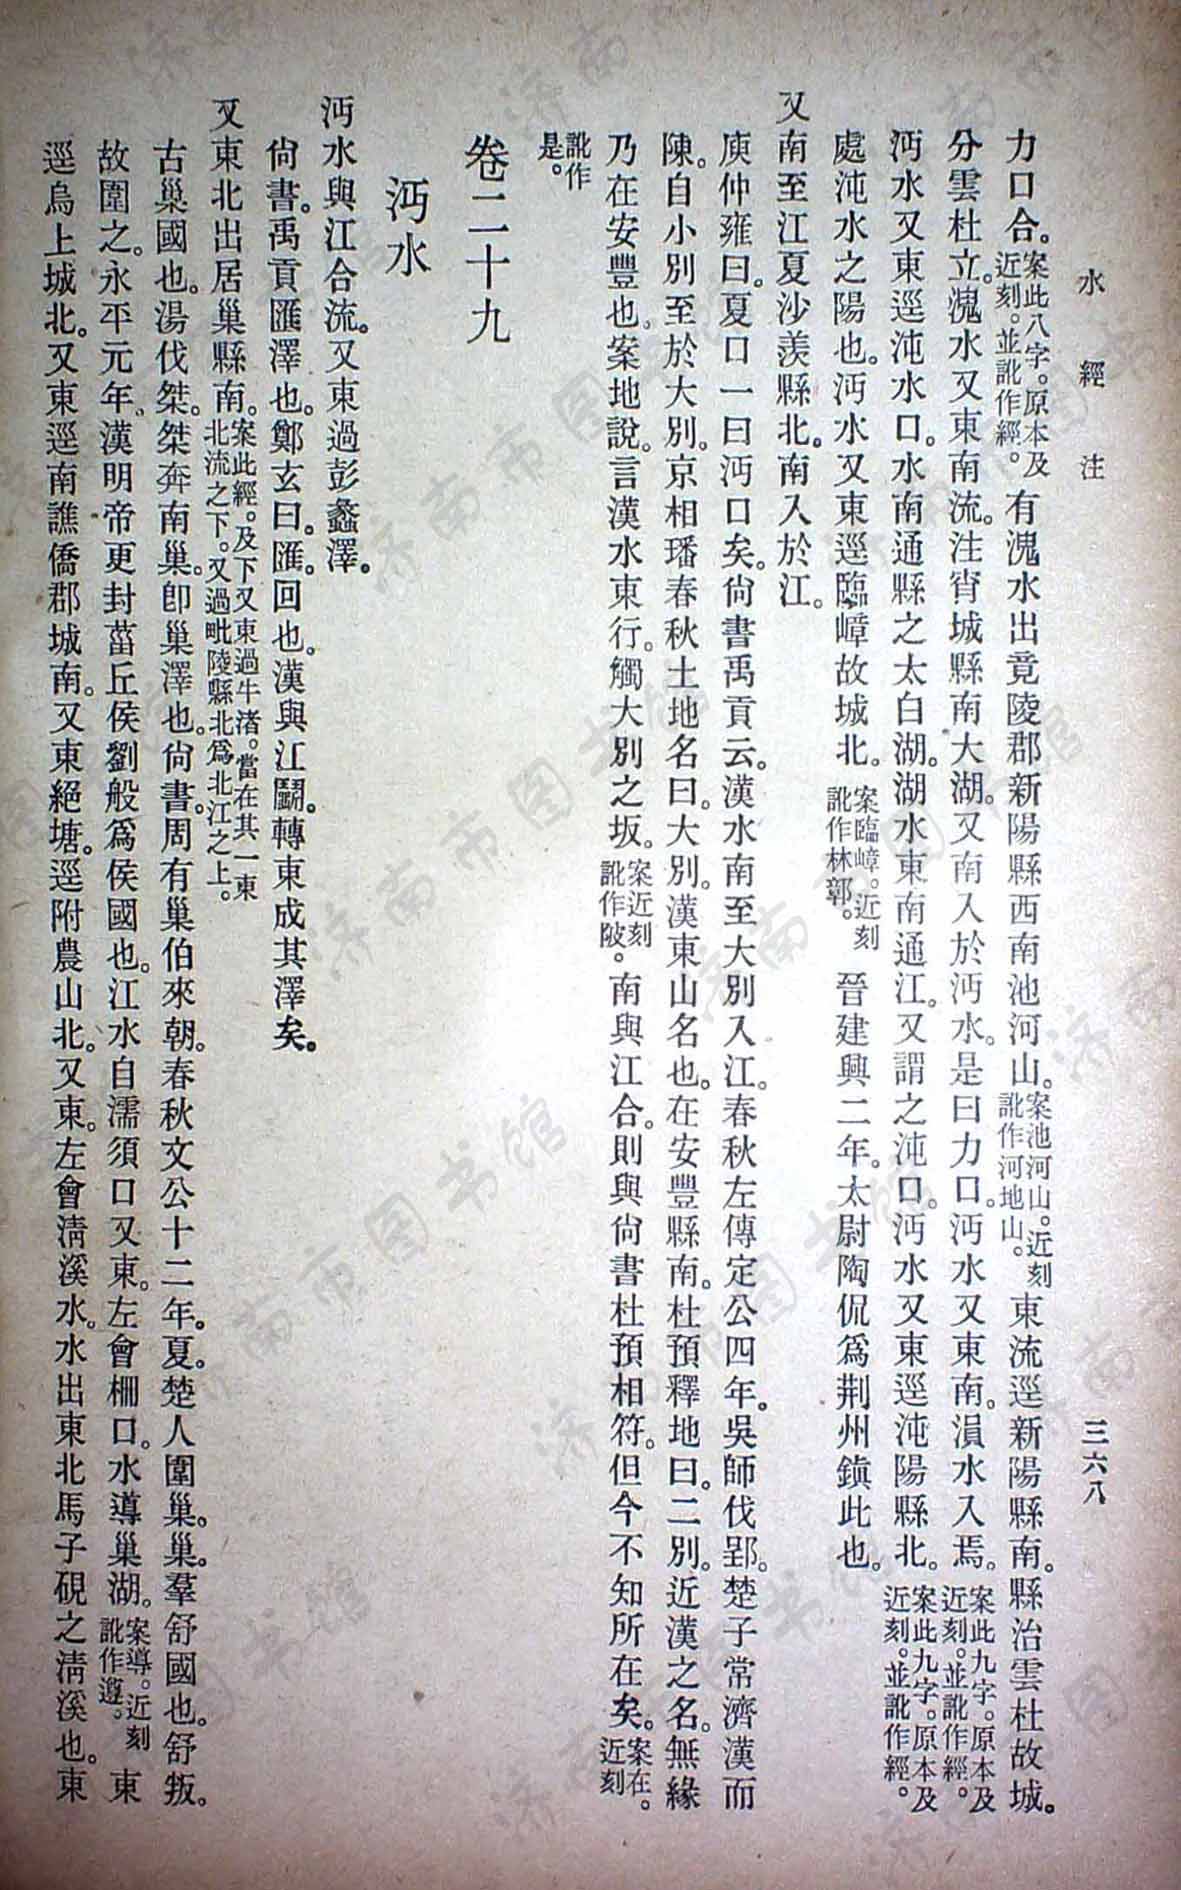 水經注
三六八
力口合。案此八字。原本及近刻。並訛作經。有溾水出竟陵郡新陽縣西南池河山。案池河山。近刻訛作河地山。東流逕新陽縣南。縣治雲杜故城。
分雲杜立。溾水又東南流。注宵城縣南大湖。又南入於沔水。是曰力口。沔水又東南。溳水入焉。案此九字。原本及近刻。並訛作經。
沔水又東逕沌水口。水南通縣之太白湖。湖水東南通江。又謂之沌口。沔水又東逕沌陽縣北。案此九字。原本及近刻。並訛作經。
處沌水之陽也。沔水又東逕臨嶂故城北。案臨嶂。近刻訛作林鄣。晉建興二年。太尉陶侃爲荆州鎮此也。
又南至江夏沙羨縣北。南入於江。
庾仲雍曰。夏口一曰沔口矣。尙書禹貢云。漢水南至大別入江。春秋左傳定公四年。吳師伐郢。楚子常濟漢而
陳。自小別至於大別。京相璠春秋土地名曰。大別。漢東山名也。在安豐縣南。杜預釋地曰。二別。近漢之名。無緣
乃在安豐也。案地說。言漢水東行。觸大別之坂。案近刻訛作陂。南與江合。則與尙書杜預相符。但今不知所在矣。案在。近刻
訛作是。
卷二十九
沔水
沔水與江合流。又東過彭蠡澤。
尙書。禹貢匯澤也。鄭玄曰。匯。回也。漢與江鬭。轉東成其澤矣。
又東北出居巢縣南。案此經。及下又東過牛渚。當在其一東北流之下。又過毗陵縣北爲北江之上。
古巢國也。湯伐桀。桀奔南巢。卽巢澤也。尙書。周有巢伯來朝。春秋文公十二年。夏。楚人圍巢。巢。羣舒國也。舒叛。
故圍之。永平元年。漢明帝更封菑丘侯劉般爲侯國也。江水自濡須口又東。左會柵口。水導巢湖。案導。近刻訛作遵。東
逕烏上城北。又東逕南譙僑郡城南。又東絕塘。逕附農山北。又東。左會淸溪水。水出東北馬子硯之淸溪也。東